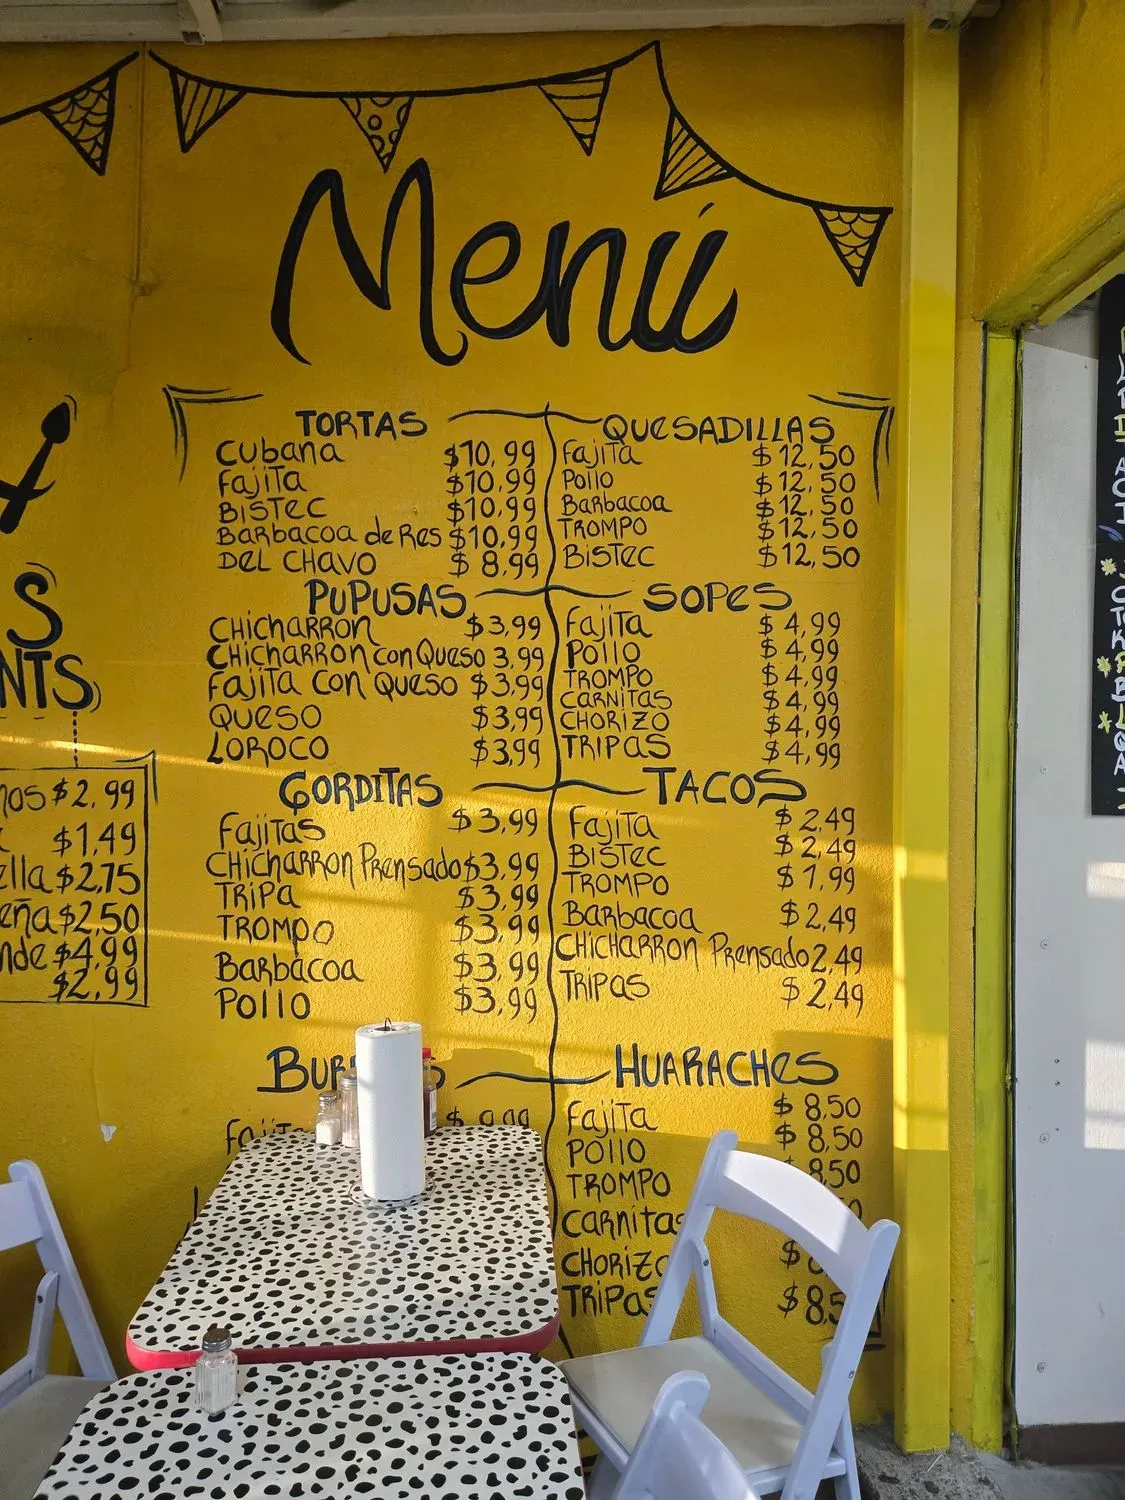 Menú
TORTAS
Cubana $10,99
Fajita $10,99
BISTEC $10,99
Barbacoa de Res $10,99
DEL CHAVO $ 8,99
PUPUSAS
CHICHARRON $3,99
CHICHARRON con Queso 3,99
Fajita con Queso $3,99
QUESO $3,99
LOROCO $3,99
GORDITAS
Fajitas $3,99
CHICHARRON Prensado $3,99
TRIPA $3,99
TROMPO $3,99
Barbacoa $3,99
POLLO $3,99
$ 9,99
QUESADILLAS
Fajita $12,50
Pollo $12,50
Barbacoa $12,50
TROMPO $12,50
BISTEC $12,50
SOPES
Fajita $ 4,99
Pollo $ 4,99
TROMPO $ 4,99
CARNITAS $ 4,99
CHORIZO $ 4,99
TRIPAS $ 4,99
TACOS
Fajita $ 2,49
BISTEC $ 2,49
TROMPO $ 1,99
Barbacoa $ 2,49
CHICHARRON Prensado 2,49
TRIPAS $ 2,49
HUARACHES
Fajita $ 8,50
POLLO $ 8,50
TROMPO 8,50
Carnitas
CHORIZO
TRIPAS $ 8,5
$2,99
$1,49
$2,75
$2,50
$4,99
$2,99